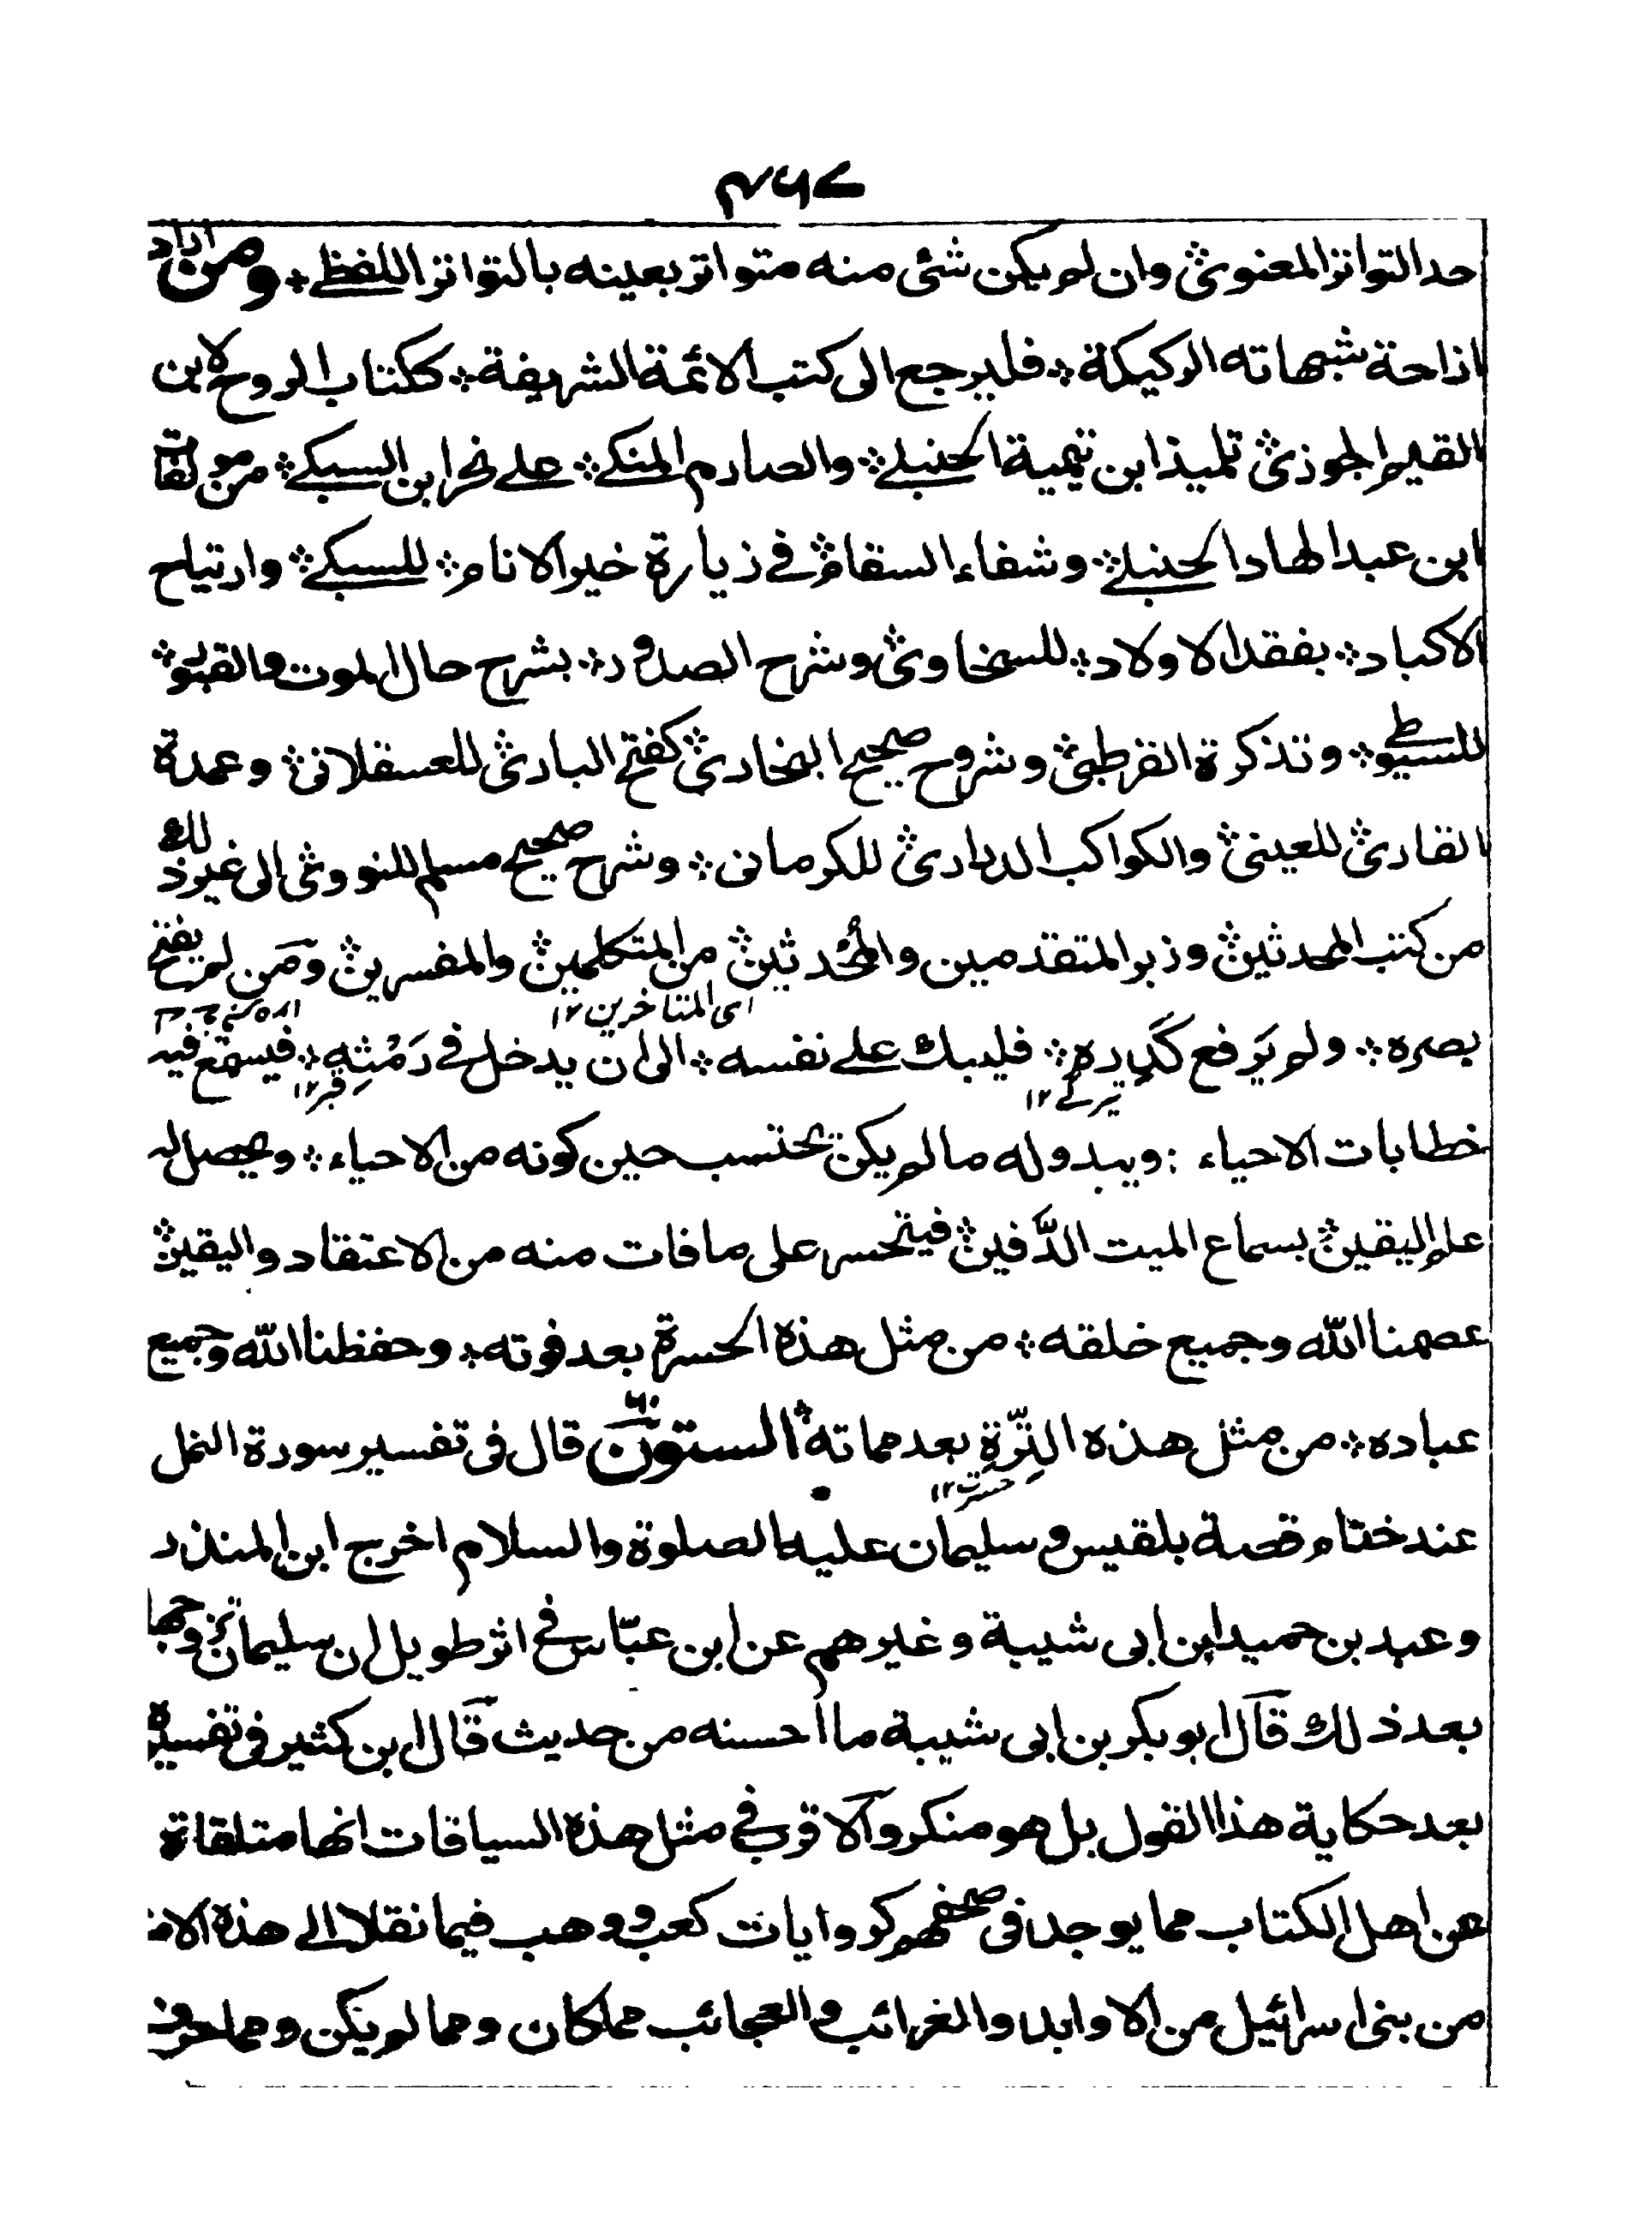 ۴۶۷
حد التواتر المعنوی وان لم یکن شئ منه متواتر بعینه بالتواتر اللفظے ؞ ومن اراد
ازاحة شبهاته الرکیکة ؞ فلیرجع الی کتب الائمة الشریفة ؞ ککتاب الروح لابن
القیم الجوزی ؞ تلمیذ ابن تیمیة الحنبلے ؞ والصارم المنکے ؞ علے نحر ابن السبکے ؞ من مولفات
ابن عبد الهاد الحنبلے ؞ وشفاء السقام ؞ فے زیارة خیر الانام ؞ للسبکے ؞ وارتیاح
الاکباد ؞ بفقد الاولاد ؞ للسخاوی ؞ وشرح الصدور ؞ بشرح حال الموت والقبور ؞
للسیوطے ؞ وتذکرة القرطبی ؞ وشروح صحیح البخاری ؞ کفتح الباری ؞ للعسقلانی ؞ وعمدة
القاری ؞ للعینی ؞ والکواکب الدراری ؞ للکرمانی ؞ وشرح صحیح مسلم للنووی ؞ الی غیر ذلك
من کتب المحدثین ؞ وزبر المتقدمین والمُحْدَثین ؞ من المتکلمین ؞ والمفسرین ؞ ومَن لم یفتح
ای المتاخرین ۱۲
بصره ؞ ولم یَرفع کَدِره ؞ فلیبك علے نفسه ؞ الی ان یدخل فے رَمْثِهٖ ؞ فیسمع فیه
تیرگے ۱۲ قبر ۱۲
خطابات الاحیاء : ویبدو له ما لم یکن یحتسب حین کونه من الاحیاء ؞ ویحصل له
علم الیقین ؞ بسماع المیت الدَّفین ؞ فیتحسر علی ما فات منه من الاعتقاد والیقین ؞
عصمنا الله وجمیع خلقه ؞ من مثل هذه الحسرة بعد فوته ؞ وحفظنا الله وجمیع
عباده ؞ من مثل هذه التِّرّةِ بعد مماته ؞ الستون ۶۰ قال فی تفسیر سورة النمل
حسرت ۱۲
عند ختام قصة بلقیس وسلیمان علیه الصلوة والسلام اخرج ابن المنذر
وعبد بن حمید ابن ابی شیبة وغیرهم عن ابن عبّاس فے اثر طویل ان سلیمان تزوجها
بعد ذلك قال ابو بکر بن ابی شیبة ما احسنه من حدیث قال ابن کثیر فی تفسیره
بعد حکایة هذا القول بل هو منکر والاقرب فے مثل هذه السیاقات انها متلقاة
عن اهل الکتاب مما یوجد فی صحفهم کروایات کعب ووهب فیما نقلا الے هذه الامة
من بنی اسرائیل من الاوابد والغرائب والعجائب مما کان ومما لم یکن ومما حرف